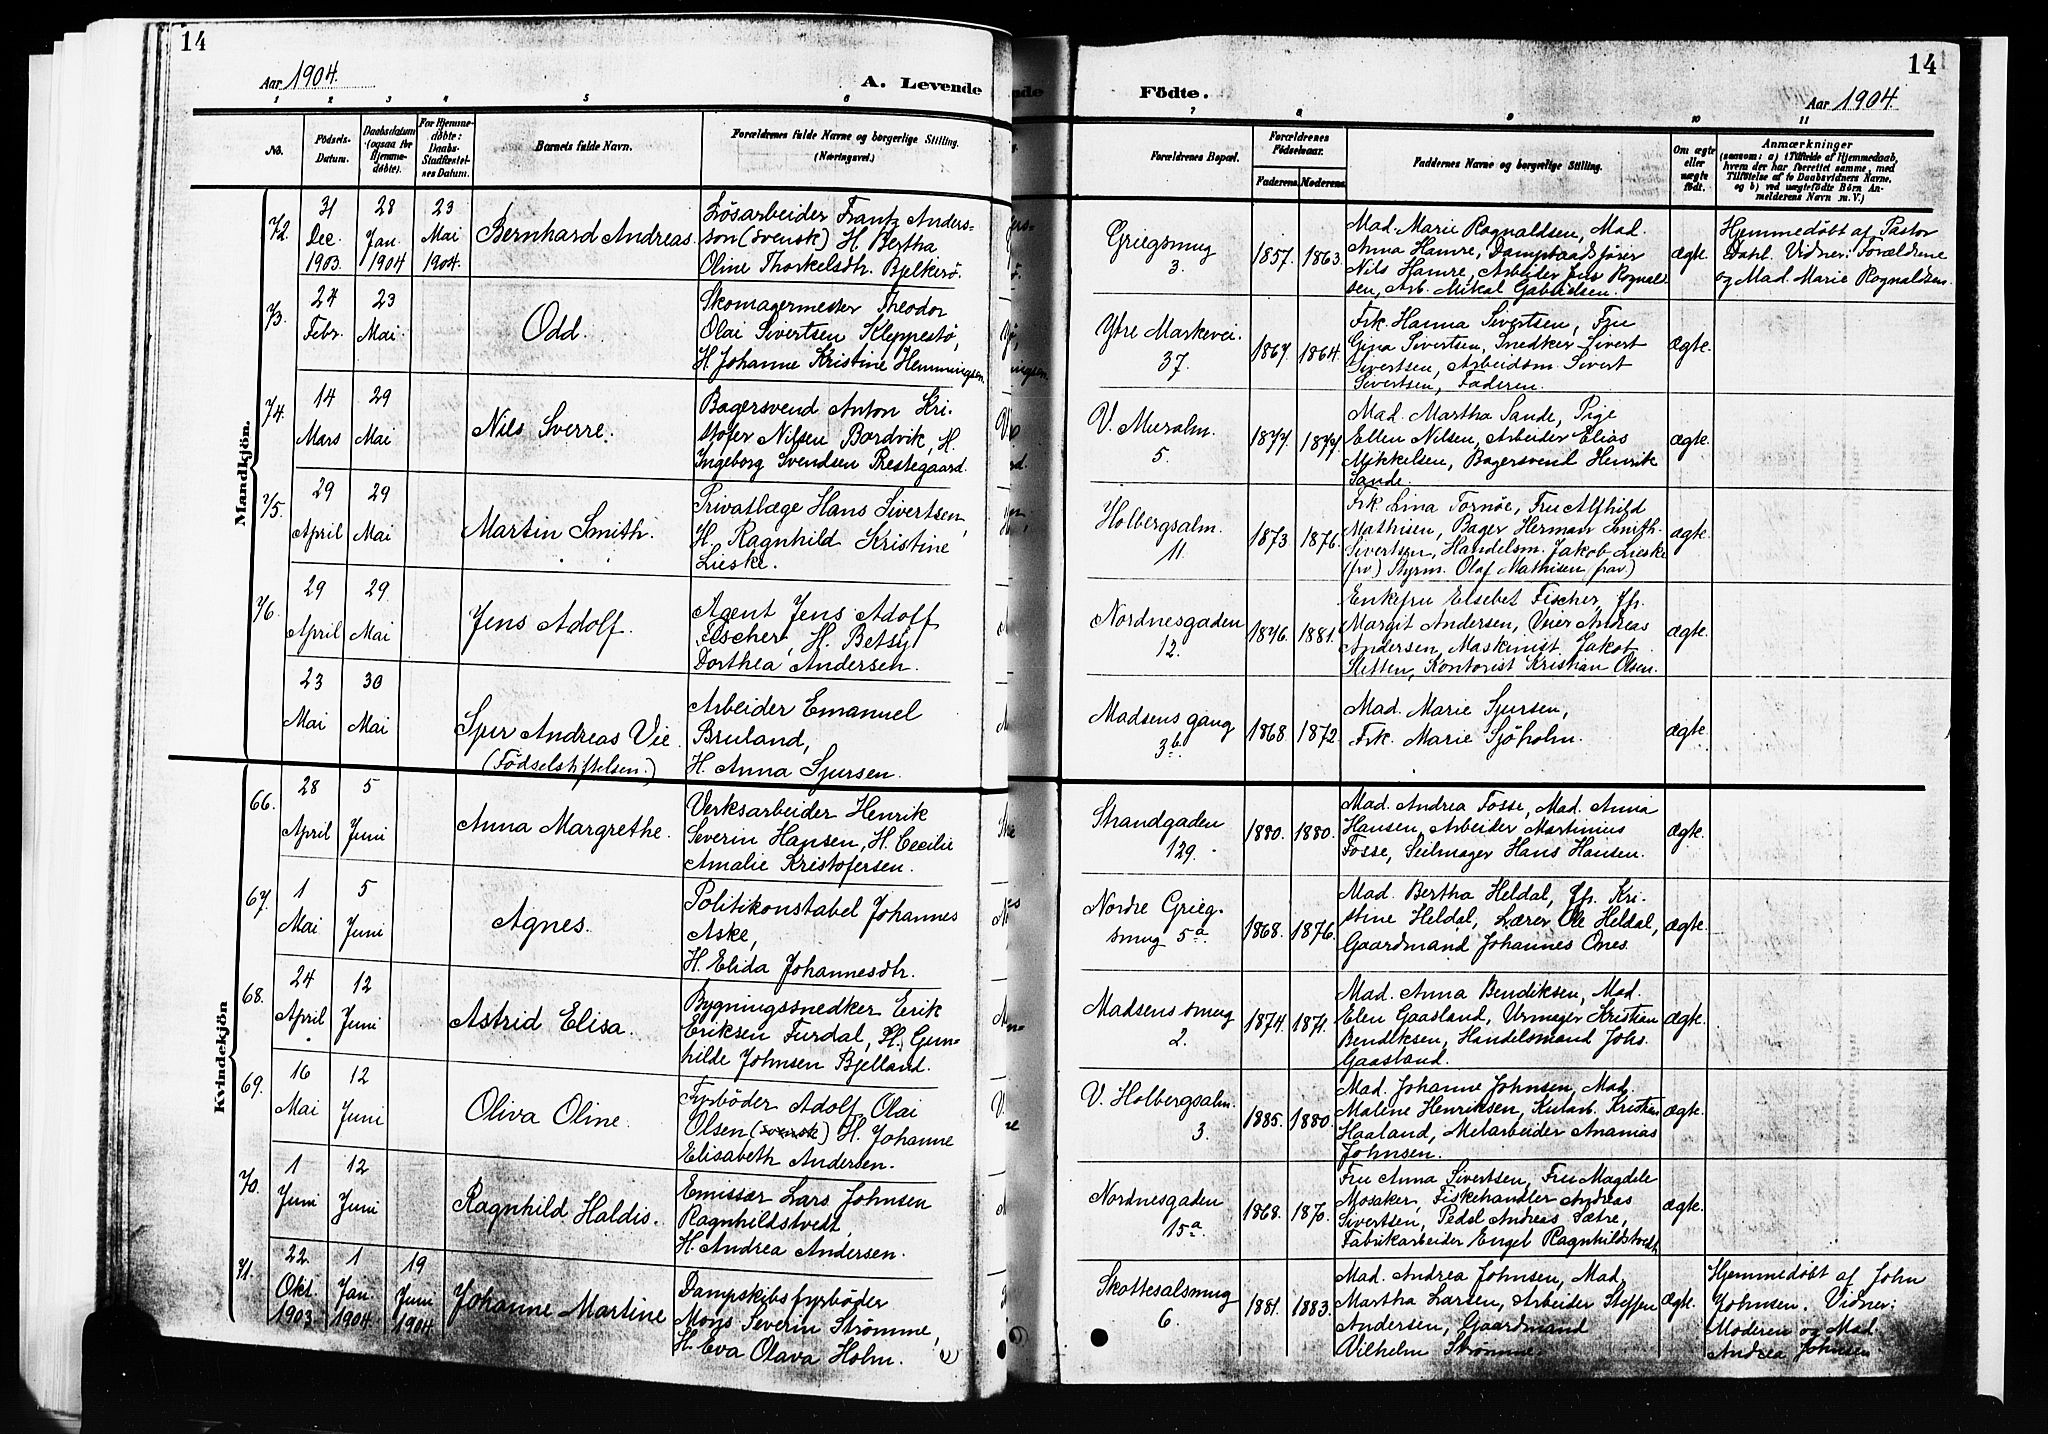 14
Aar 1904.
A. Levende
1 2 3 4 5 6
No.
Födsels-
Datum.
Daabsdatum
(ogsaa for
Hjemme-
döbte).
For Hjemme-
döbte:
Daabs-
Stadfæstel-
ses Datum.
Barnets fulde Navn.
Forældrenes fulde Navne og borgerlige Stilling.
(Næringsvei.)
Mandkjön.
72.
31
Dec.
1903.
28
Jan.
1904
23
Mai
1904.
Bernhard Andreas.
Løsarbeider Frantz Anders-
son (svensk) H. Bertha
Oline Thorkelsdtr. Bjelkerö.
73.
27
Febr.
23
Mai.
Odd.
Skomagermester Theodor
Olai Sivertsen Kleppestö,
H. Johanne Kristine Hemmingsen.
74.
14
Mars
29
Mai
Nils Sverre.
Bagersvend Anton Kri-
stofer Nilsen Bordvik, H.
Ingeborg Svendsen Prestegaard.
75.
29
April
29
Mai
Martin Smith.
Privatlæge Hans Sivertsen,
H. Ragnhild Kristine
Lieske.
76.
29
April
29.
Mai
Jens Adolf.
Agent Jens Adolf
Fischer, H. Betsy
Dorthea Andersen.
23
Mai
30
Mai
Sjur Andreas Vie.
(Födselstiftelsen.)
Arbeider Emanuel
Bruland,
H. Anna Sjursen.
Kvindekjön
66.
28
April
5
Juni
Anna Margrethe.
Verksarbeider Henrik
Severin Hansen, H. Cecilie
Amalie Kristofersen.
67.
1
Mai
5
Juni
Agnes.
Politikonstabel Johannes
Aske,
H. Elida Johannesdtr.
68.
24
April
12
Juni
Astrid Elisa.
Bygningssnedker Erik
Eriksen Furdal, H. Gun-
hilde Johnsen Bjelland.
69.
16
Mai
12
Juni
Oliva Oline.
Fyrböder Adolf Olai
Olsen (svensk) H. Johanne
Elisabeth Andersen.
70.
1
Juni
12
Juni
Ragnhild Haldis.
Emissær Lars Johnsen
Ragnhildstvedt,
H. Andrea Andersen.
71.
22.
Okt.
1903.
1
Jan.
1904.
19
Juni
1904
Johanne Martine
Dampskibsfyrböder
Mons Severin Strömme,
H. Eva Olava Holm.
14
Födte.
Aar 1904.
7 8 9 10 11
Forældrenes Bopæl.
Forældrenes
Födselsaar.
Faderens.
Moderens.
Faddernes Navne og borgerlige Stilling.
Om ægte
eller
uægte
födt.
Anmærkninger
(saasom: a) i Tilfælde af Hjemmedaab,
hvem der har forrettet samme, med
Tilföielse af to Daabsvidners Navne,
og b) ved uægtefödte Börn An-
melderens Navn m. V.)
Griegsmug
3.
1857.
1863.
Mad. Marie Ragnaldsen, Mad.
Anna Hamre, Dampbaadsförer
Nils Hamre, Arbeider Jens Rognald-
sen, Arb. Mikal Gabrielsen.
ægte.
Hjemmedöbt af Pastor
Dahl. Vidner: Forældrene
og Mad. Marie Rognaldsen.
Ytre Markevei.
37.
1867.
1864.
Frk. Hanna Sivertsen, Fru
Gina Sivertsen, Snedker Sivert
Sivertsen, Arbeidsm. Sivert
Sivertsen, Faderen.
ægte.
V. Muralm.
5.
1877.
1877.
Mad. Martha Sande, Pige
Ellen Nilsen, Arbeider Elias
Mikkelsen, Bagersvend Henrik
Sande.
ægte.
Holbergsalm.
11.
1873
1876.
Frk. Lina Tornöe, Fru Alfhild
Mathisen, Bager Herman Smith-
Sivertsen, Handelsm. Jakob Lieske
(frv.) Styrm. Olaf Mathisen frav.)
ægte.
Nordnesgaden
12.
1876.
1881.
Enkefru Elsebet Fischer, Jfr.
Margit Andersen, Vrier Andreas
Andersen, Maskinist Jakob
Sletten, Kontorist Kristian Olsen.
ægte.
Madsens gang
3b.
1868
1872.
Mad. Marie Sjursen,
Frk. Marie Sjöholm.
ægte.
Strandgaden
129.
1880.
1880.
Mad. Andrea Fosse, Mad. Anna
Hansen, Arbeider Martinius
Fosse, Seilmager Hans Hansen.
ægte.
Nordre Grieg-
smug 5a.
1868.
1876.
Mad. Bertha Heldal, Jfr. Kri-
stine Heldal, Lærer Ole Heldal,
Gaardmand Johannes Ones.
ægte.
Madsens smug
2.
1874.
1871.
Mad. Anna Bendiksen, Mad.
Elen Gaasland, Urmager Kristian
Bendiksen, Handelsmand Johs.
Gaasland.
ægte.
V. Holbergsalm.
3.
1885.
1880.
Mad. Johanne Johnsen, Mad.
Malene Henriksen, Kularb. Kristian
Haaland, Melarbeider Ananias
Johnsen.
ægte.
Nordnesgaden
15a.
1868.
1870.
Fru Anna Sivertsen, Fru Magdele
Mosaker, Fiskehandler Andreas
Sivertsen, Pedel Andreas Sætre,
Fabrikarbeider Engel Ragnhildstvedt
ægte.
Skottesalsmug
6.
1881.
1883.
Mad. Andrea Johnsen, Mad.
Martha Larsen, Arbeider Steffen
Andersen, Gaardmand
Vilhelm Strömme.
ægte.
Hjemmedöbt af John
Johnsen. Vidner:
Moderen og Mad.
Andrea Johnsen.